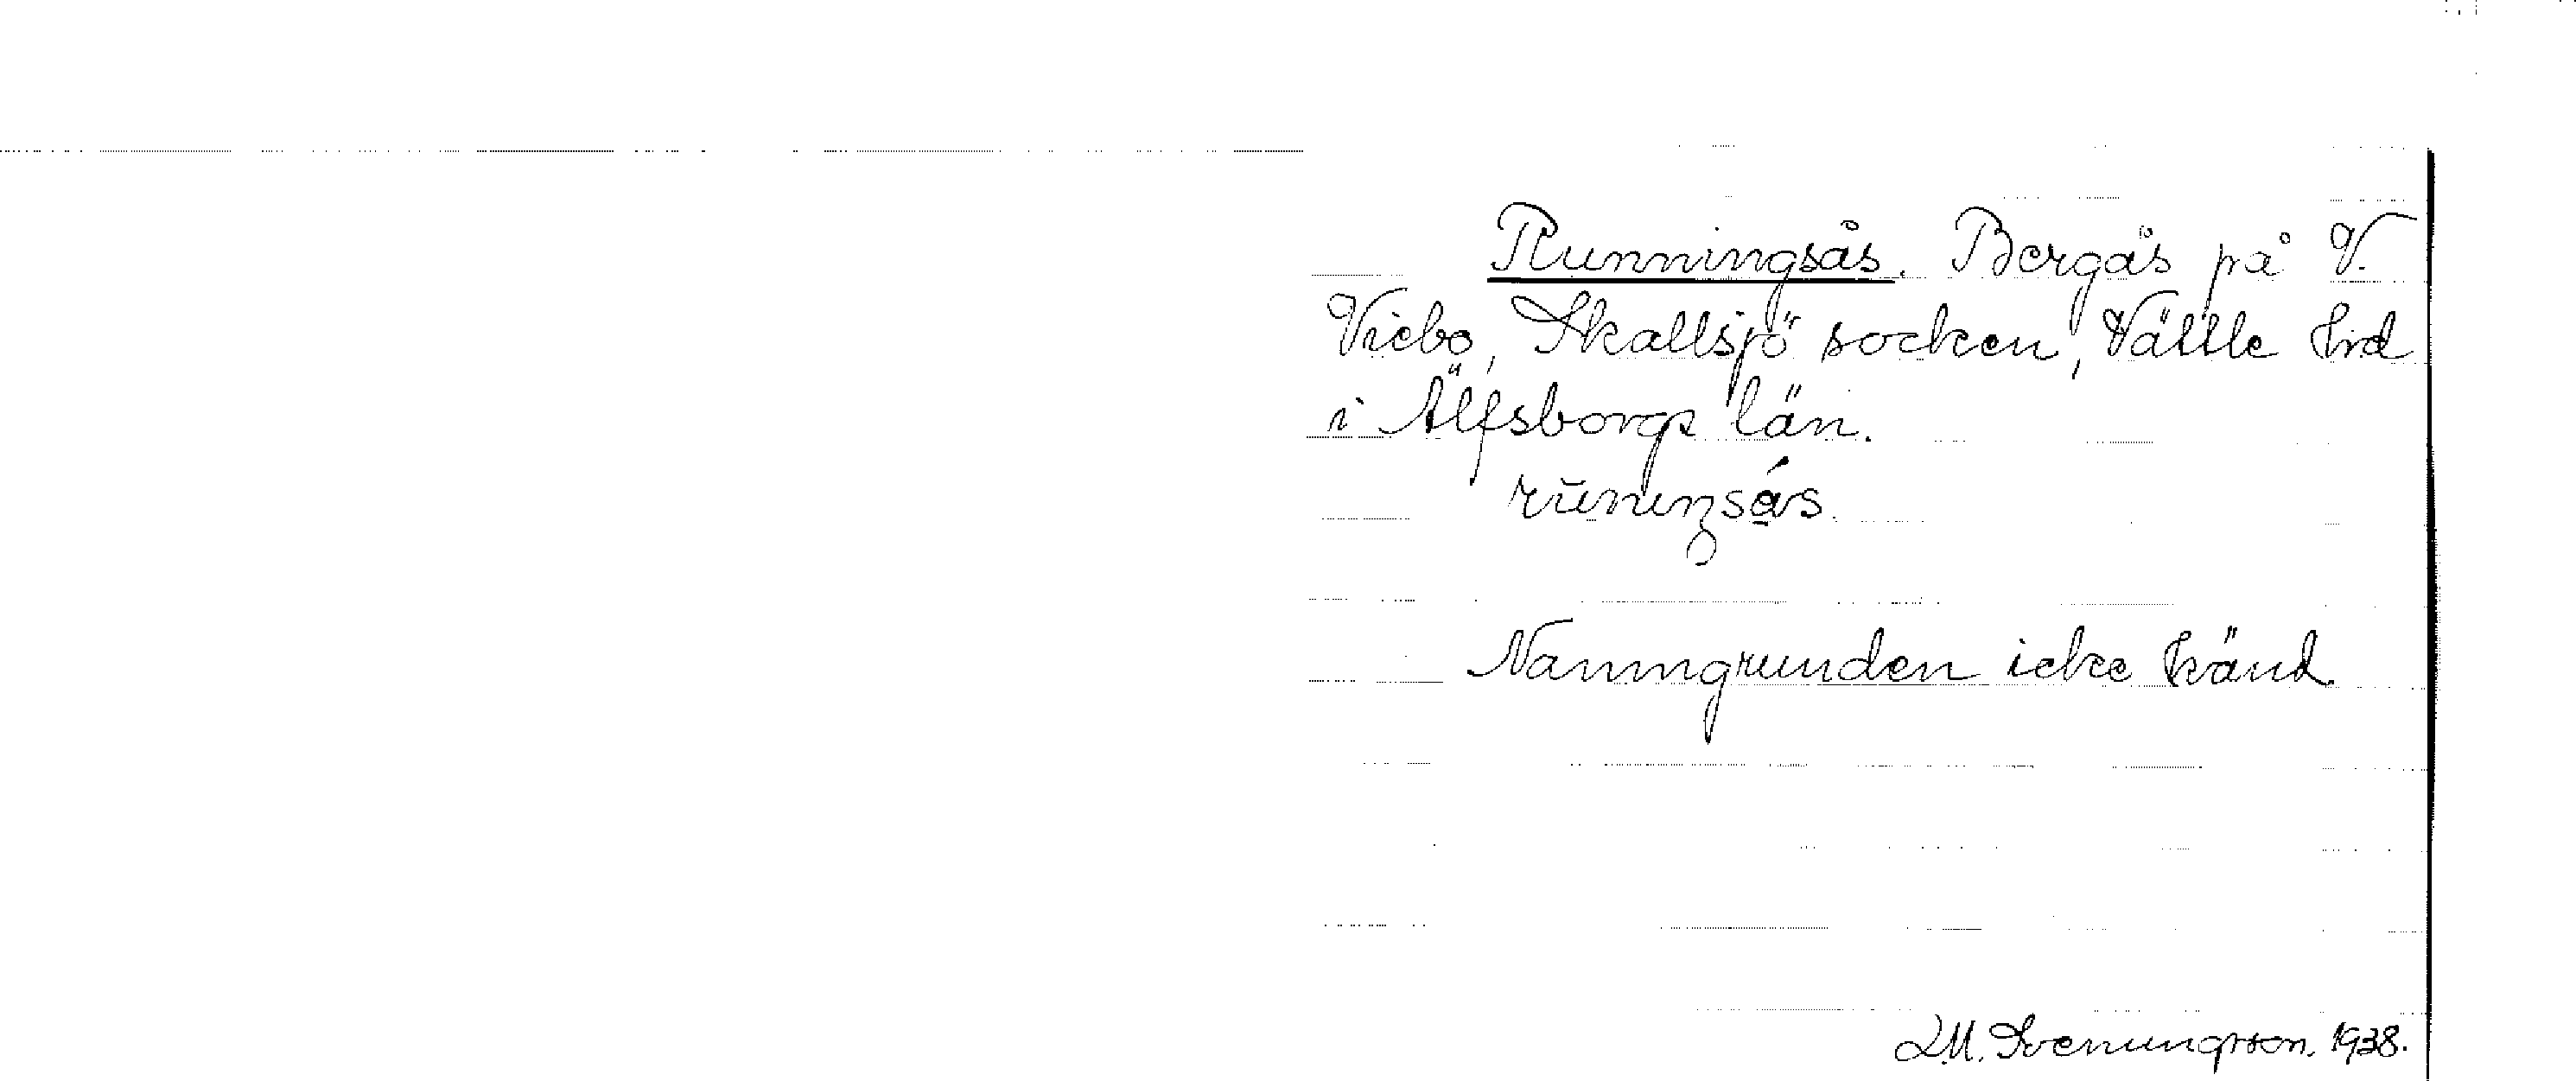 Runningsås. Bergås på V.
Viebo, Skallsjö socken, Vättle hrd
i Älfsborgs län.
Namngrunden icke känd.
L.M. Svenungsson. 1938.